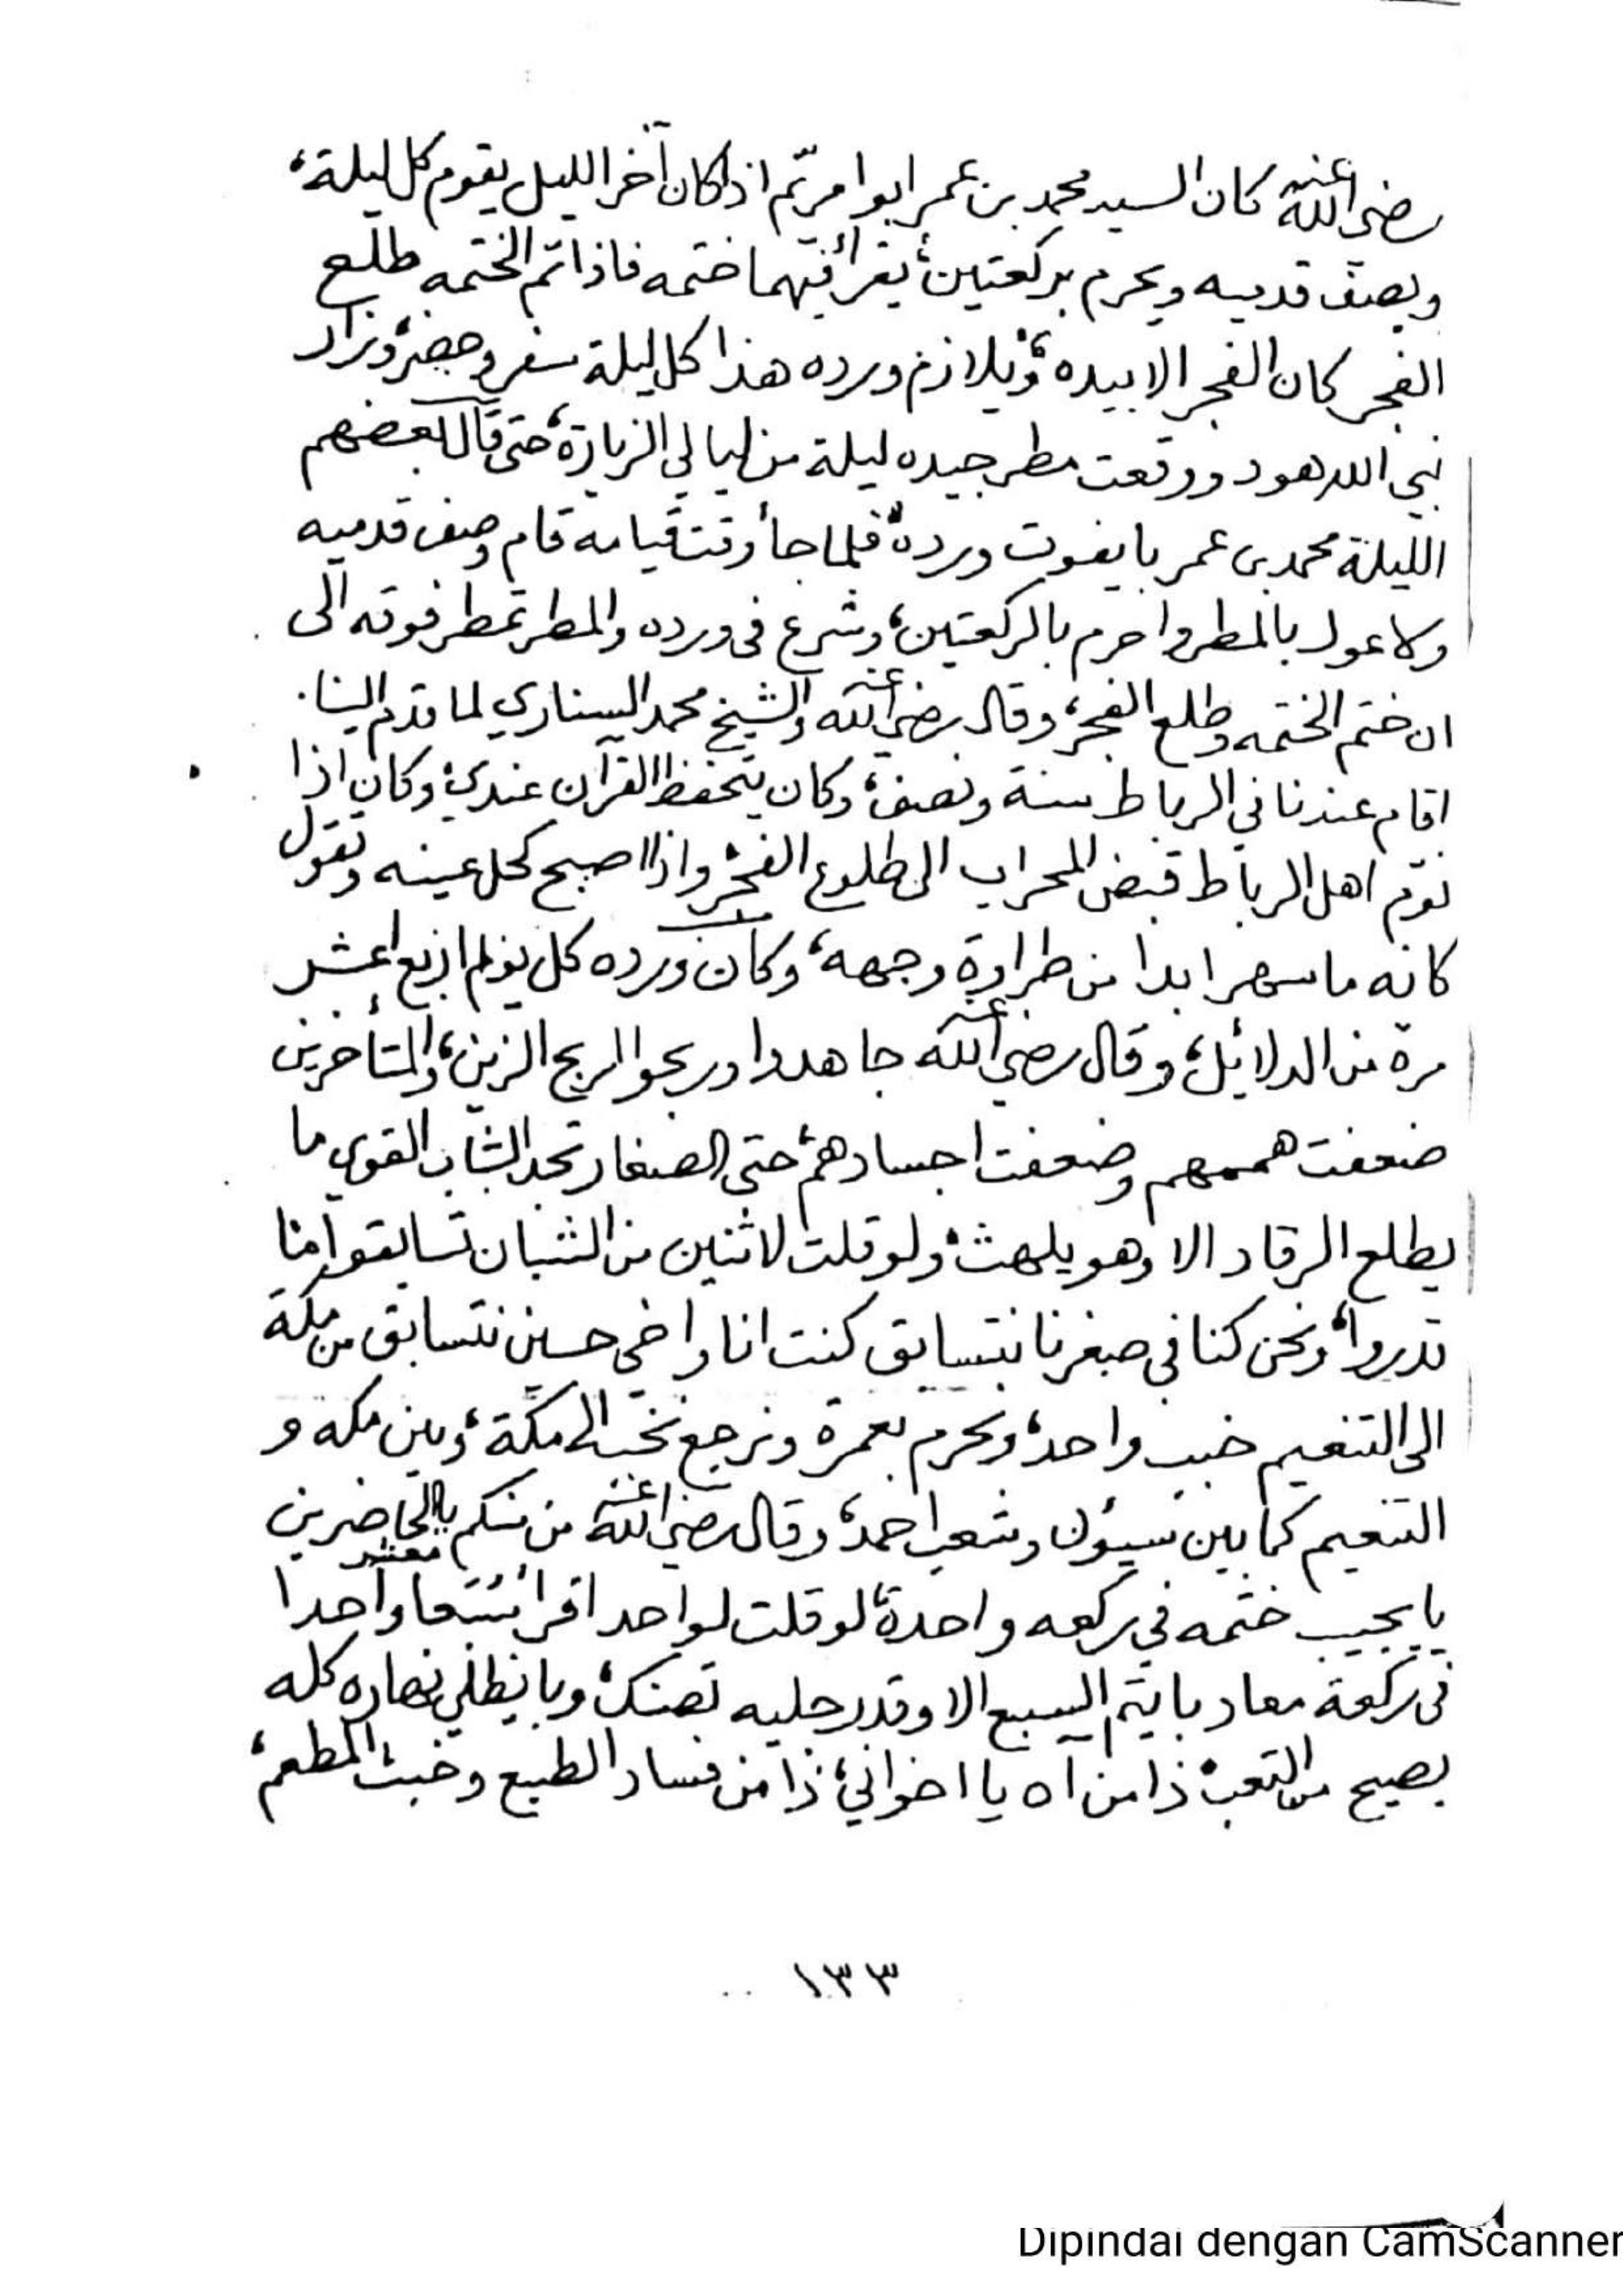 رضي الله عنه كان السيد محمد بن عمر ابوا مريّم اذا كان آخر الليل يقوم كل ليلة،
ويصفّ قدميه ويحرم بركعتين، يقرأ فيهما ختمه فاذا تم الختمه طلع
الفجر كان الفجر الا بيده، ويلازم ورده هذا كل ليلة سفر وحضر، وزار
نبي الله هود ووقعت مطر جيده ليلة من ليالي الزيارة، حتى قال بعضهم
الليلة محمد بن عمر بايفوت ورده، فلما جأ وقت قيامه قام وصف قدميه
ولا عول بالمطر واحرم بالركعتين، وشرع في ورده والمطر تمطر فوقه الى
ان ختم الختمه وطلع الفجر، وقال رضي الله عنه والشيخ محمد السناري لما قدم الينا
اقام عندنا في الرباط سنة ونصف، وكان يتحفظ القرآن عندي، وكان اذا
نوّم اهل الرباط قبض المحراب الى طلوع الفجر، واذا اصبح كحل عينه وتقول
كانه ما سهر ابدا من طراوة وجهه، وكان ورده كل يوم اربع عشر
مرة من الدلائل، وقال رضي الله عنه جاهدوا وربحوا الربح الزين، والمتأخرين
ضعفت هممهم وضعفت اجسادهم، حتى الصغار تجد الشاب القوي ما
يطلع الرقاد الا وهو يلهث، ولو قلت لاثنين من الشبان تسابقوا منا
تدروا، ونحن كنا في صغرنا نتسابق كنت انا واخي حسين نتسابق من مكة
الى التنعيم خبب واحد، ونحرم بعمرة ونرجع نخب الى مكّة، وبين مكه و
التنعيم كما بين سيؤن وشعب احمد، وقال رضي الله عنه من منكم يا الحاضرين
يا يجيب ختمه في ركعه واحدة، لو قلت لواحد اقرأ معشر واحدا
في ركعة معاد بايتم السبع الا وقدر جليه تصنك، وبايظلي نهاره كله
يصيح من التعب، ذا من آه يا اخواني، ذا من فساد الطبع وخبث المطعم،
١٣٣
Dipindai dengan CamScanner